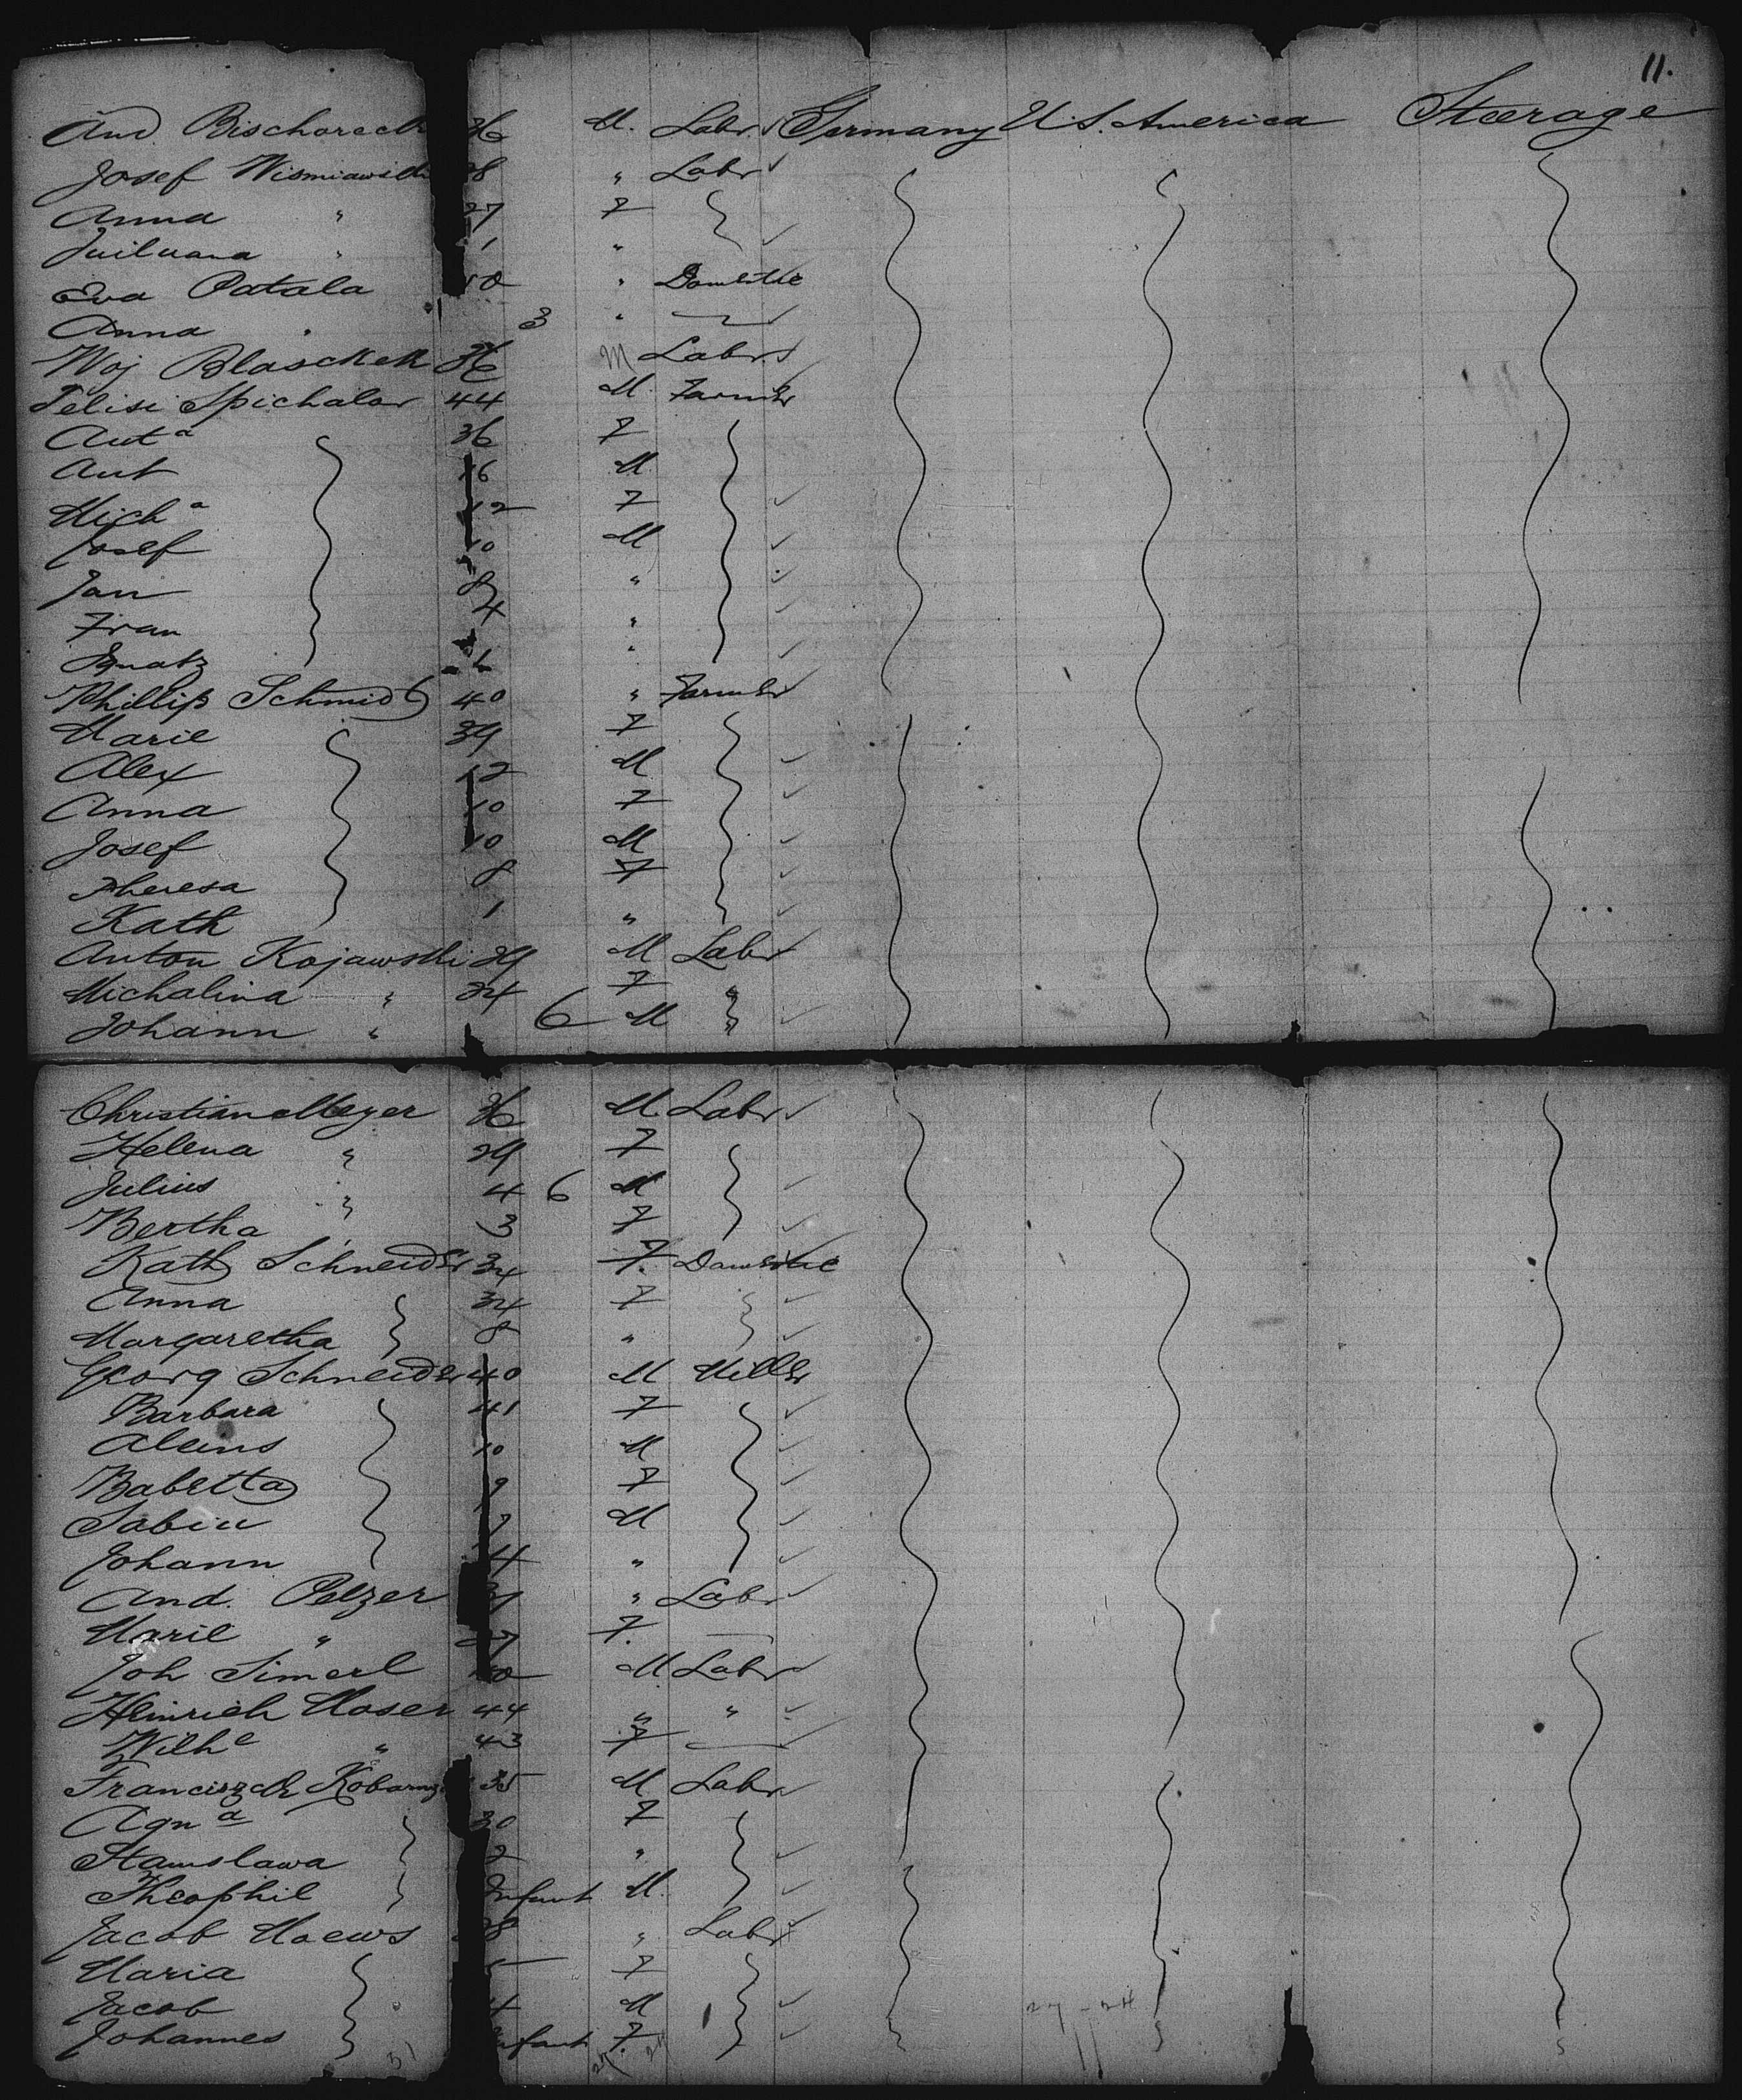 11.
And. Bischoreck 36 M. Labr Germany U.S. America Steerage
Josef Wismiawsk 28 " Labr
Anna " 27 F
" 1 "
Eva Patala 50 " Domestic
Anna " 3 "
Woj Blasckek 36 M Labr
Felisi Spichalar 44 M. Farmer
Ant a 36 F
Ant 16 M.
Mich a 12 F
Josef 10 M
Jan 8 "
Fran 4 "
Ignatz "
Phillip Schmidt 40 " Farmer
Marie 39 F
Alex 12 M
Anna 10 F
Josef 10 M
Theresa 8 F
Kath 1 "
Anton Kojawski 29 M Labr
Michalina " 24 F "
Johann " 6 M "
Christian Meyer 36 M. Labr
Helena " 29 F
Julius " 4 6 M
Bertha " 3 F
Kath Schneider 34 F. Domestic
Anna 34 F
Margaretha 8 "
Georg Schneider 40 M Miller
Barbara 41 F
10 M
Babetta 9 F
Sabin 7 M
Johann 4 "
And. Pelzer " Labr
Marie " 27 F.
Joh Simerl M Labr
Heinrich Moser 44 " "
Wilh e " 43 F
Franciszek 35 M Labr
Agn a 30 F
Stanislawa 2 "
Theophil Infant M.
Jacob Moews 28 " Labr
Maria F
Jacob 4 M
Johannes Infant F.